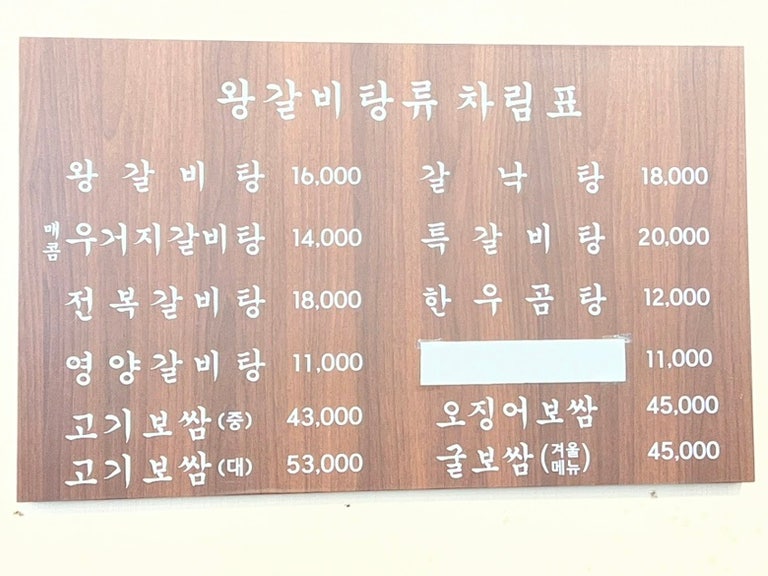 왕갈비탕류 차림표
왕갈비탕 16,000
매콤 우거지갈비탕 14,000
전복갈비탕 18,000
영양갈비탕 11,000
고기보쌈(중) 43,000
고기보쌈(대) 53,000
갈낙탕 18,000
특갈비탕 20,000
한우곰탕 12,000
11,000
오징어보쌈 45,000
굴보쌈(겨울메뉴) 45,000